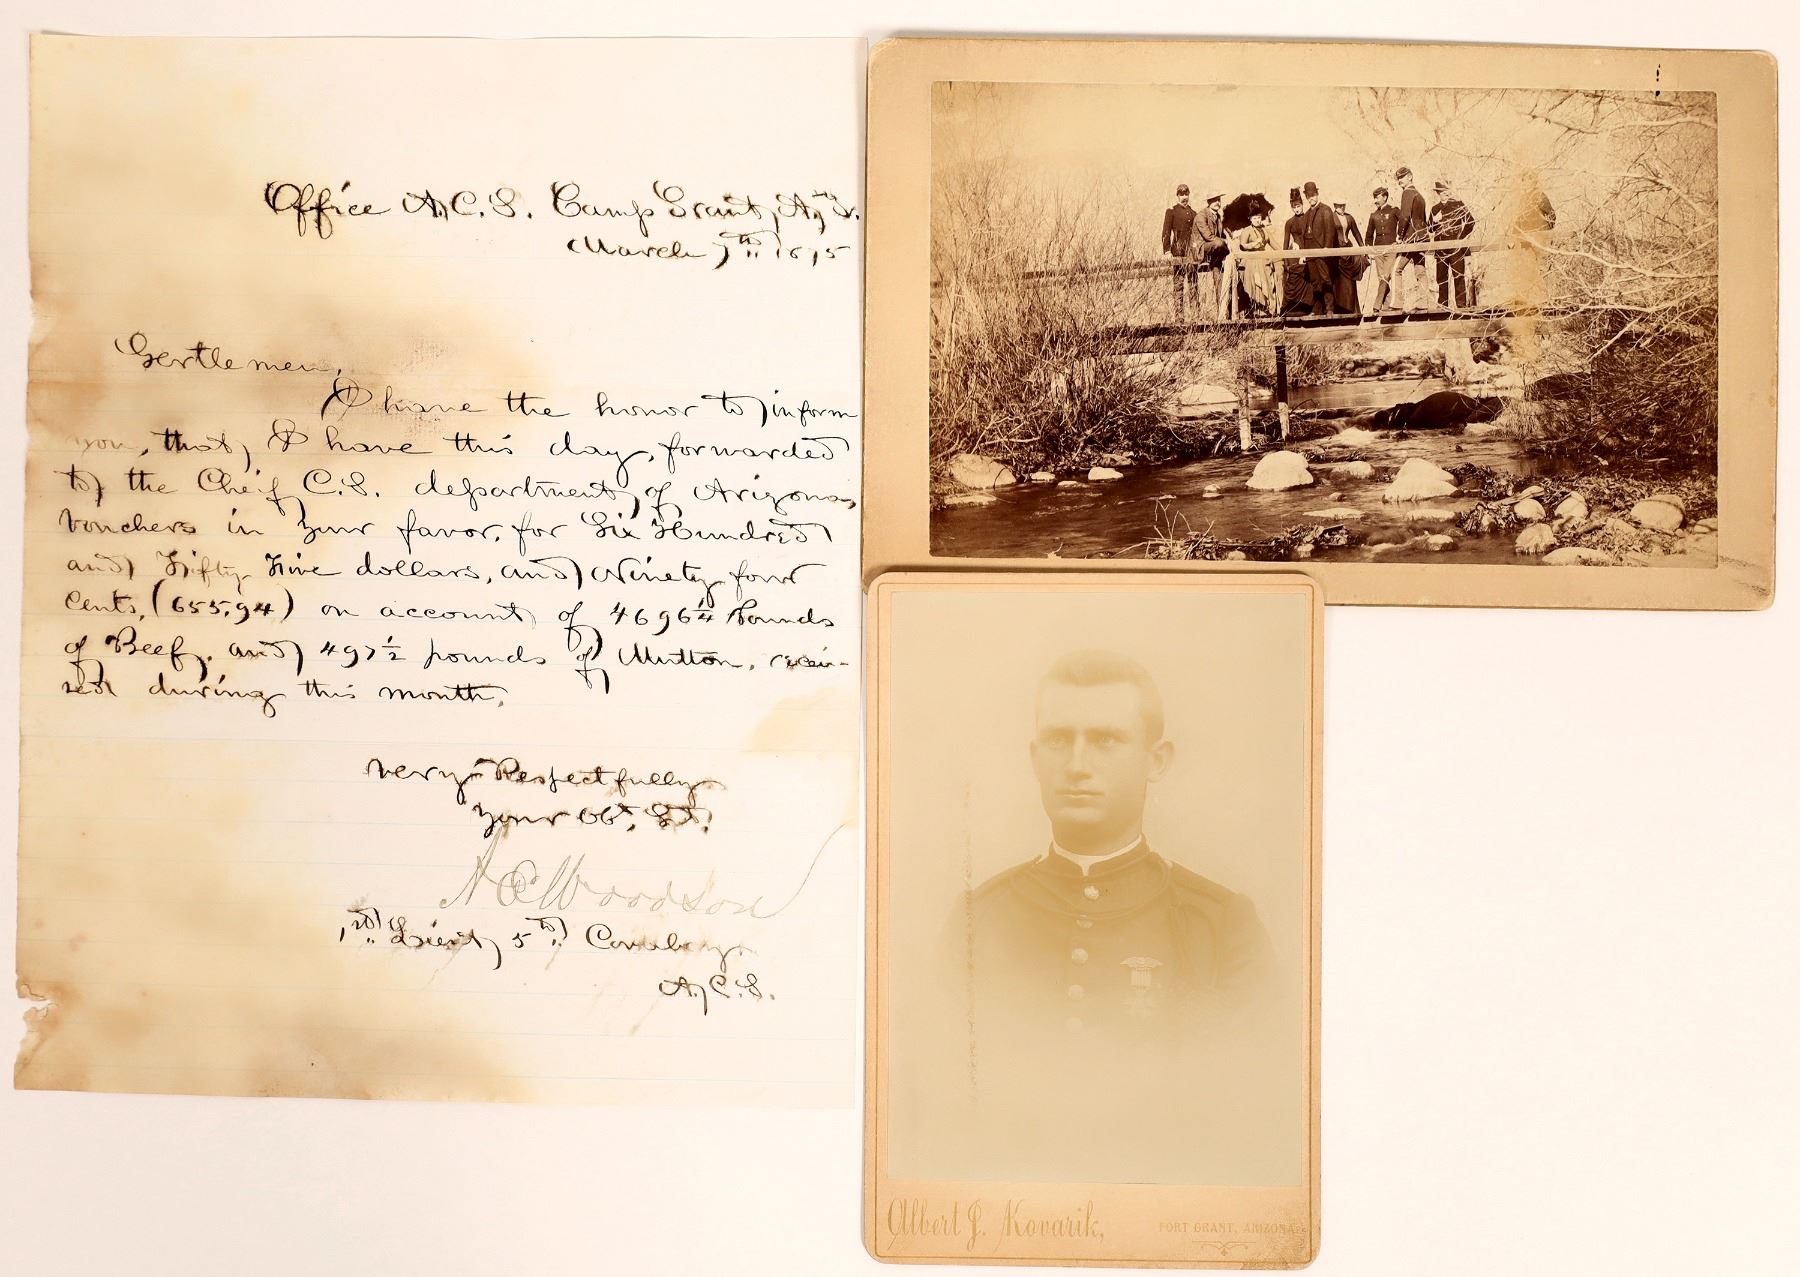 Office A.C.S. Camp Grant, A.T.
March 7th 1875
Gentlemen,
I have the honor to inform
you, that, I have this day, forwarded
to the Cheif C.S. department of Arizona,
vouchers in your favor, for Six Hundred
and Fifty Five dollars, and Ninety four
Cents, (655,94) on account of 4696 1/4 Pounds
of Beef, and 497 1/2 pounds of Mutton, recei-
ved during this month.
Very Respectfully
Your Obt. St.
A E Woodson
1st Lieut, 5th Cavalry.
A.C.S.
Albert J. Kovarik,
FORT GRANT, ARIZONA